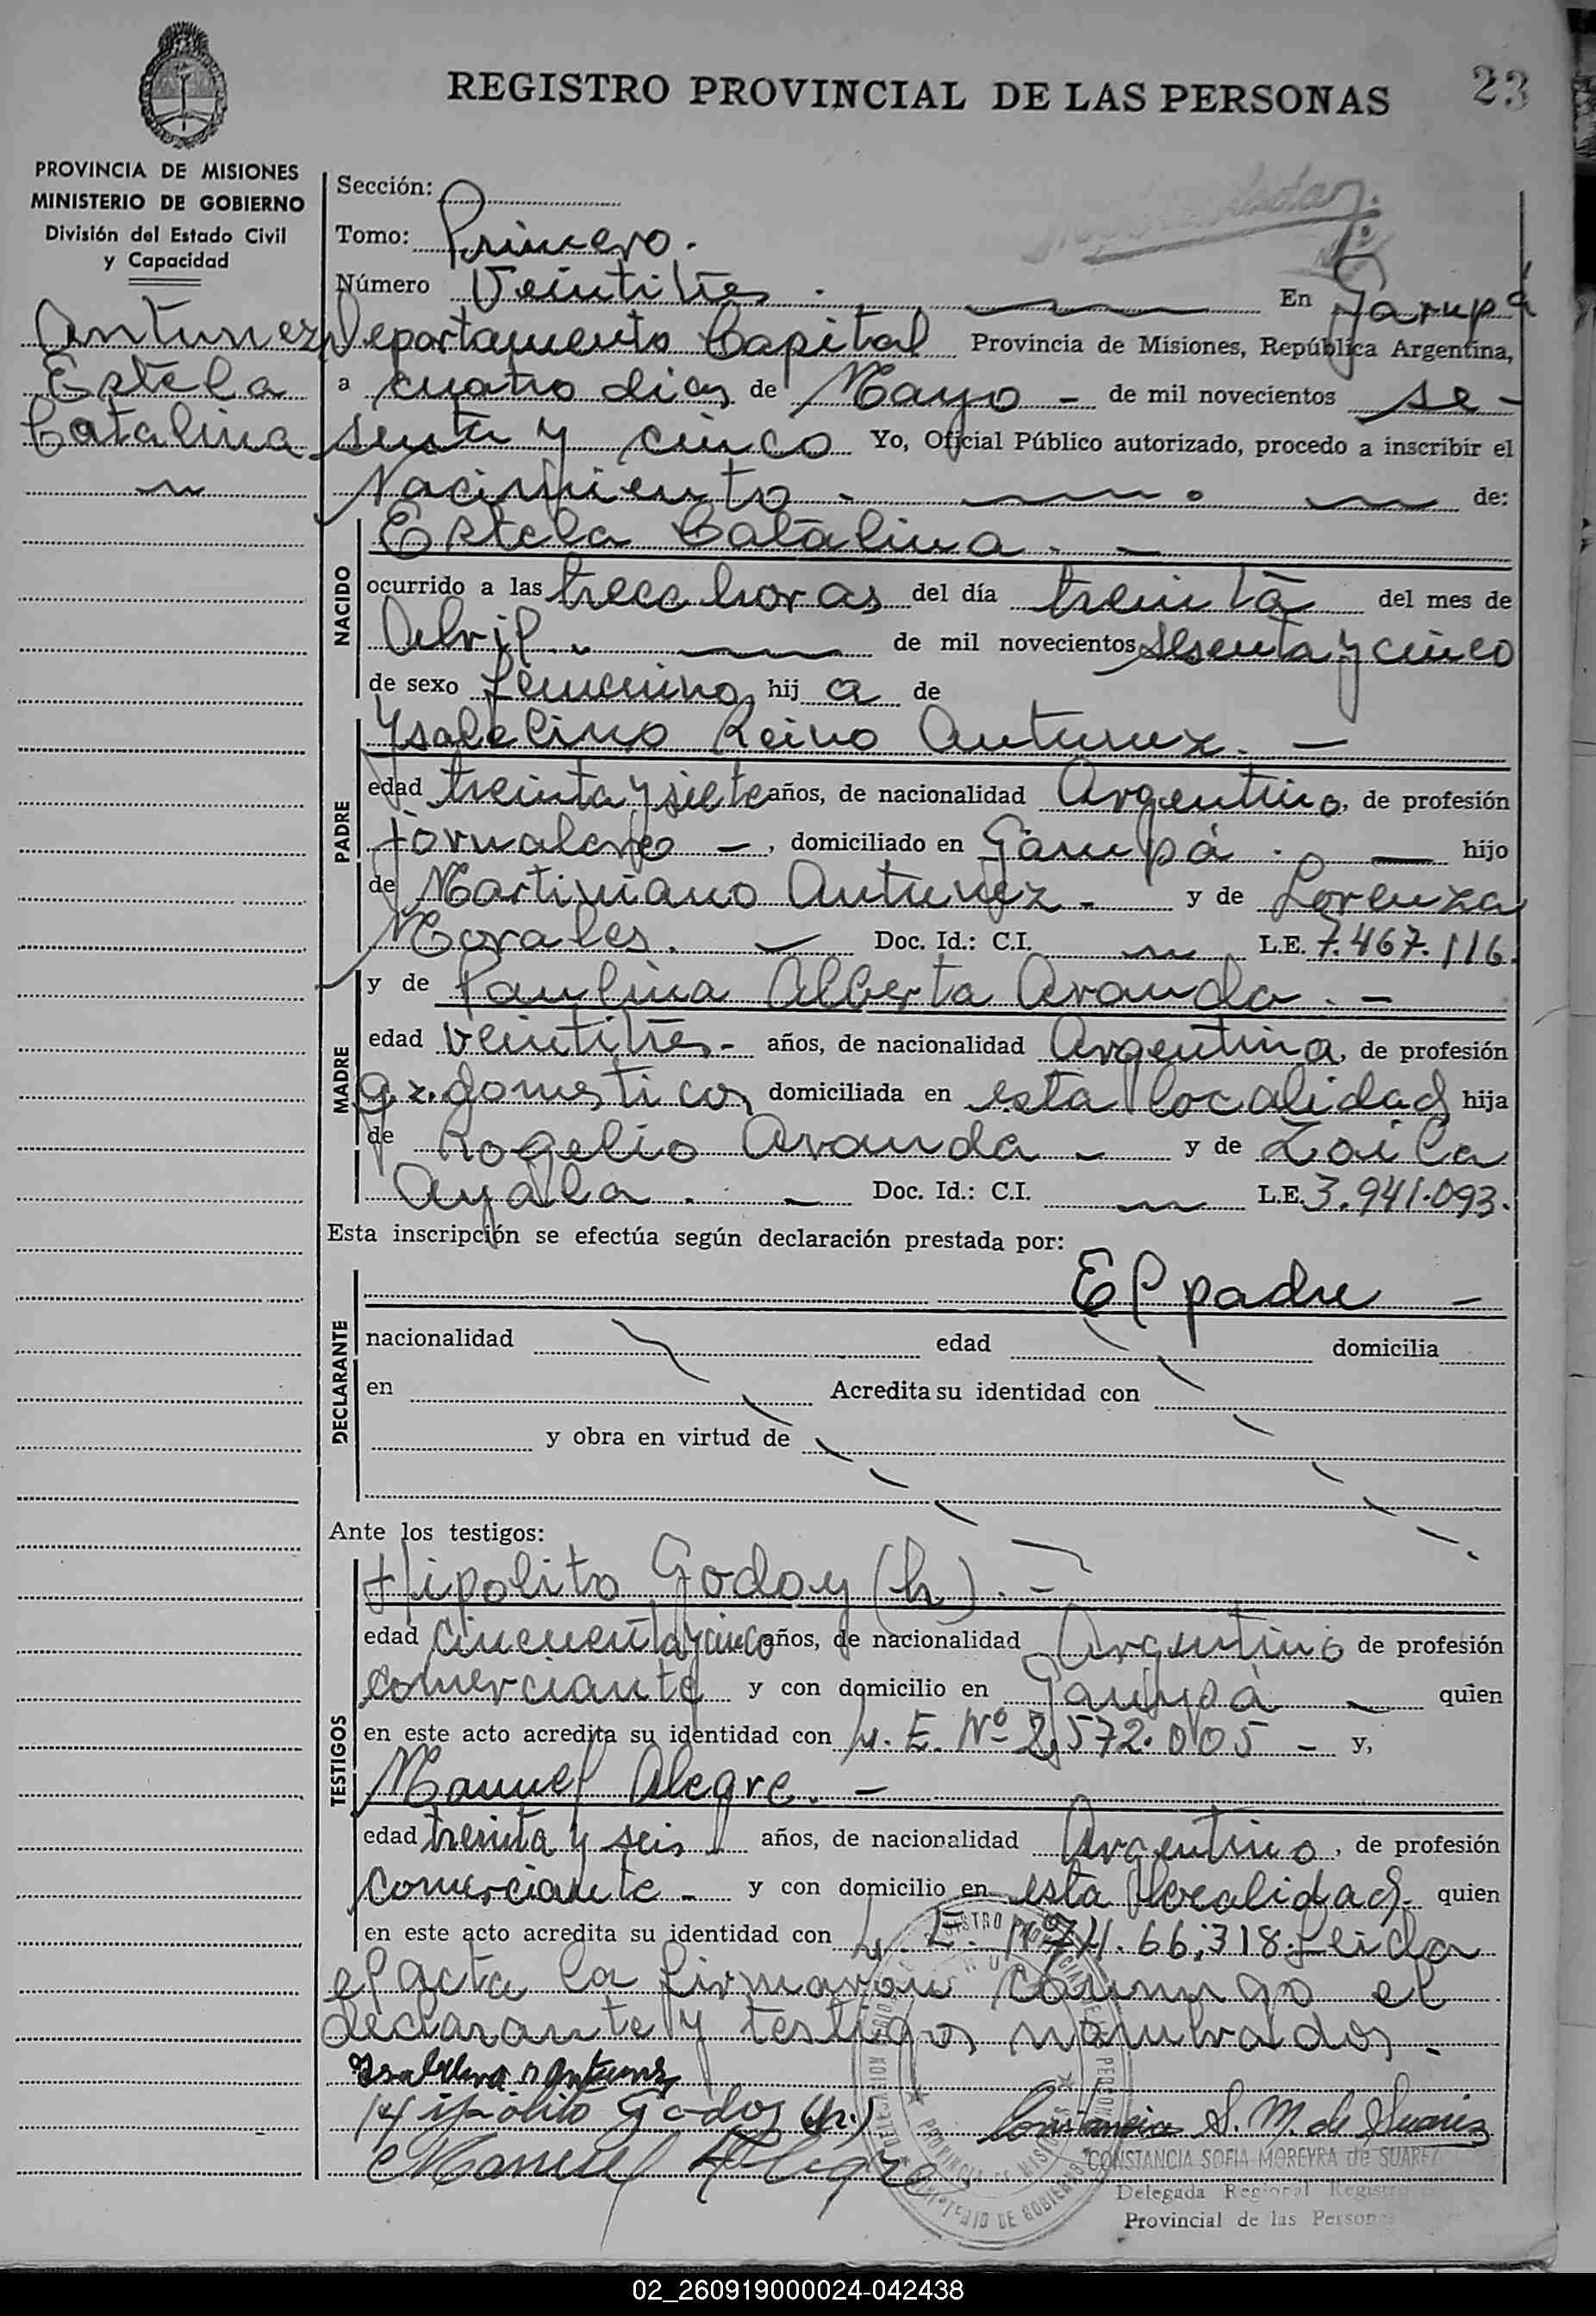 REGISTRO PROVINCIAL DE LAS PERSONAS
23
PROVINCIA DE MISIONES
MINISTERIO DE GOBIERNO
División del Estado Civil
y Capacidad
Antunez
Estela
Catalina
Sección:
Tomo: Primero.
Número Veintitres. En Garupá
Departamento Capital Provincia de Misiones, República Argentina,
a cuatro dias de Mayo - de mil novecientos se-
senta y cinco Yo, Oficial Público autorizado, procedo a inscribir el
Nacimiento - de:
NACIDO
Estela Catalina. -
ocurrido a las trece horas del día treinta del mes de
Abril de mil novecientos sesenta y cinco
de sexo femenino hij a de
PADRE
Ysabelino Reino Antunez. -
edad treinta y siete años, de nacionalidad Argentino, de profesión
jornalero -, domiciliado en Garupá. - hijo
de Martiniano Antunez - y de Lorenza
Morales. - Doc. Id.: C.I. L.E. 7.467.116.
MADRE
y de Paulina Alberta Aranda. -
edad veintitres - años, de nacionalidad Argentina, de profesión
q.z. domesticos domiciliada en esta localidad hija
de Rogelio Aranda - y de Zoila
Ayala. - Doc. Id.: C.I. L.E. 3.941.093.
Esta inscripción se efectúa según declaración prestada por:
DECLARANTE
El padre -
nacionalidad edad domicilia
en Acredita su identidad con
y obra en virtud de
Ante los testigos:
TESTIGOS
Hipolito Godoy (h). -
edad cincuenta y cinco años, de nacionalidad Argentino de profesión
comerciante y con domicilio en Garupá - quien
en este acto acredita su identidad con L.E. Nº 2.572.005 - y,
Manuel Alegre. -
edad treinta y seis años, de nacionalidad Argentino, de profesión
comerciante - y con domicilio en esta localidad. quien
en este acto acredita su identidad con L.E. Leida
el acta la firmaron conmigo el
declarante y testigos nombrados. -
Hipolito Godoy (h.)
Manuel Alegre
Constancia S. M. de Suarez
CONSTANCIA SOFIA MOREYRA de SUAREZ
Delegada Regional Registro
Provincial de las Personas
02_260919000024-042438